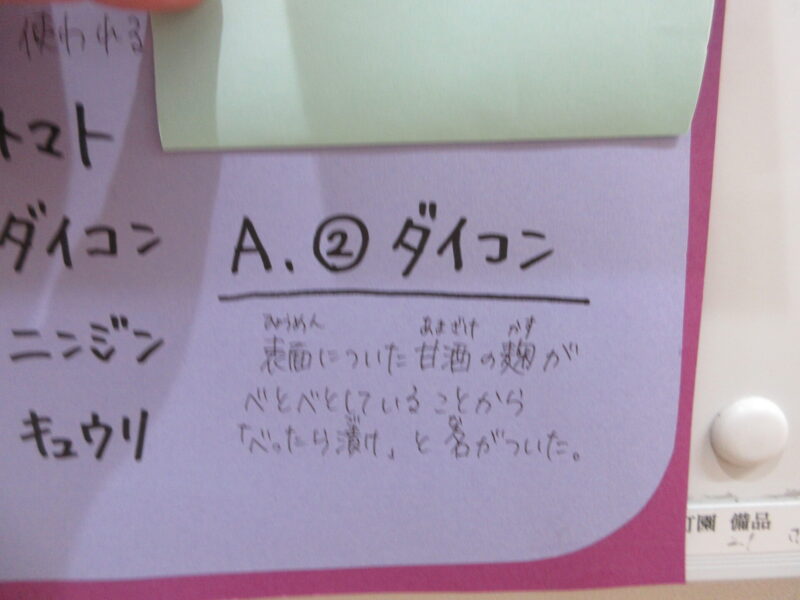 使われる
トマト
ダイコン
ニンジン
キュウリ
A. ② ダイコン
ひょうめん あまざけ かす
表面についた甘酒の麹が
べとべとしていることから
づ な
「べったら漬け」と名がついた。
町園 備品